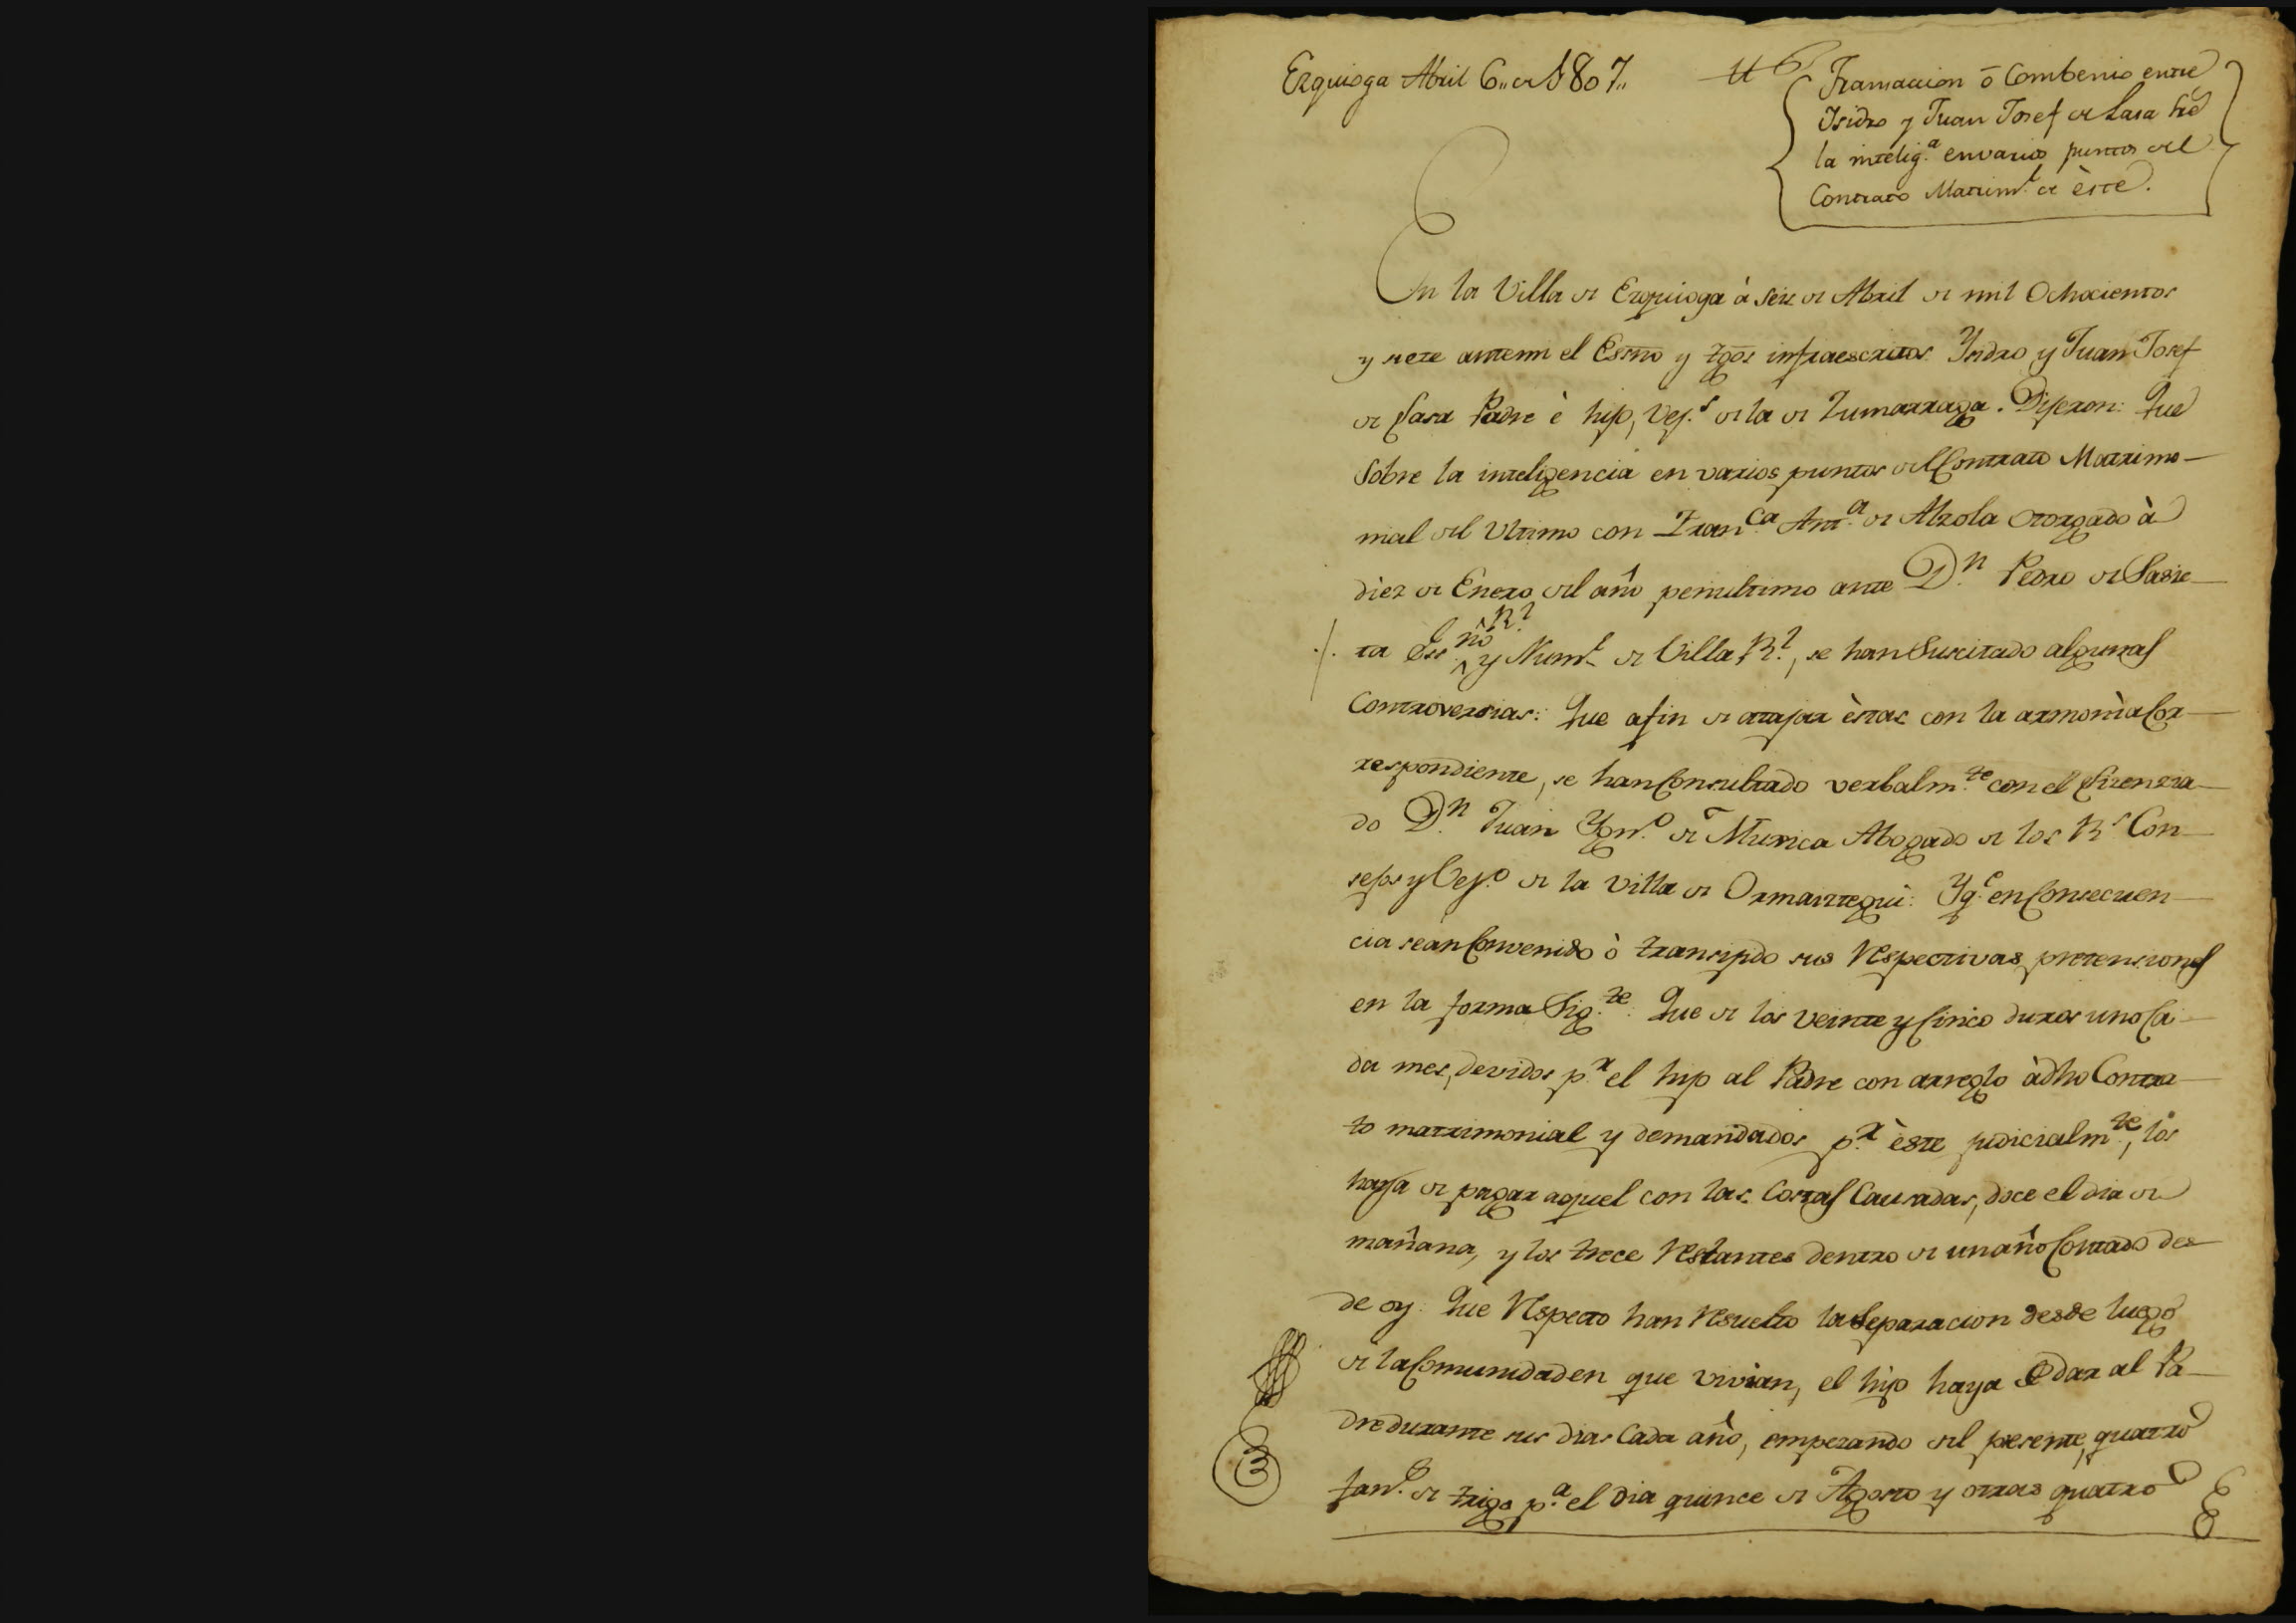 Ezquioga Abril 6,, de 1807,,
Transaccion ô Combenio entre
Isidro y Juan Josef de Lasa sre
la intelig.ª en varios puntos del
Contrato Matrim.l de èste.
En la Villa de Ezquioga à seis de Abril de mil Ochocientos
y siete antemi el Essno y tgos infraescritos Ysidro y Juan Josef
de Lasa Padre è hijo, Vej.s de la de Zumarraga. Dijeron: Que
Sobre la inteligencia en varios puntos del Contrato Matrimo-
nial del Ultimo con Fran.ca Ant.ª de Alzola Otorgado à
dièz de Enero del año penultimo ante D.n Pedro de Sasie-
ta Ess.no R.l y Num.l de Villa R.l, se han Suscitado algunas
Controversias: Que afin de atajar èstas con la armonìa Cor-
respondiente, se han Consultado verbalm.te con el Licenzia-
do D.n Juan Ygn.o de Muxica Abogado de los R.s Con-
sejos y Vej.o de la Villa de Ormaiztegui: Yq.e en Consecuen-
cia sean Convenido ò transijido sus Respectivas pretensiones
en la forma Sig.te: Que de los veinte y Cinco duros uno Ca-
da mes, devidos p.r el hijo al Padre con arreglo àdho Contra-
to matrimonial y demandados p.r èste judicialm.te, los
haya de pagar aquel con las Costas Causadas, doce el dia de
mañana, y los trece Restantes dentro de un año Contado des-
de oy: Que Respecto han Resuelto la Separacion desde luego
de la Comunidad en que vivian, el hijo haya de dar al Pa-
dre durante sus dias Cada año, empezando del presente, quatro
fan.s de trigo p.ª el dia quince de Agosto y otras quatro